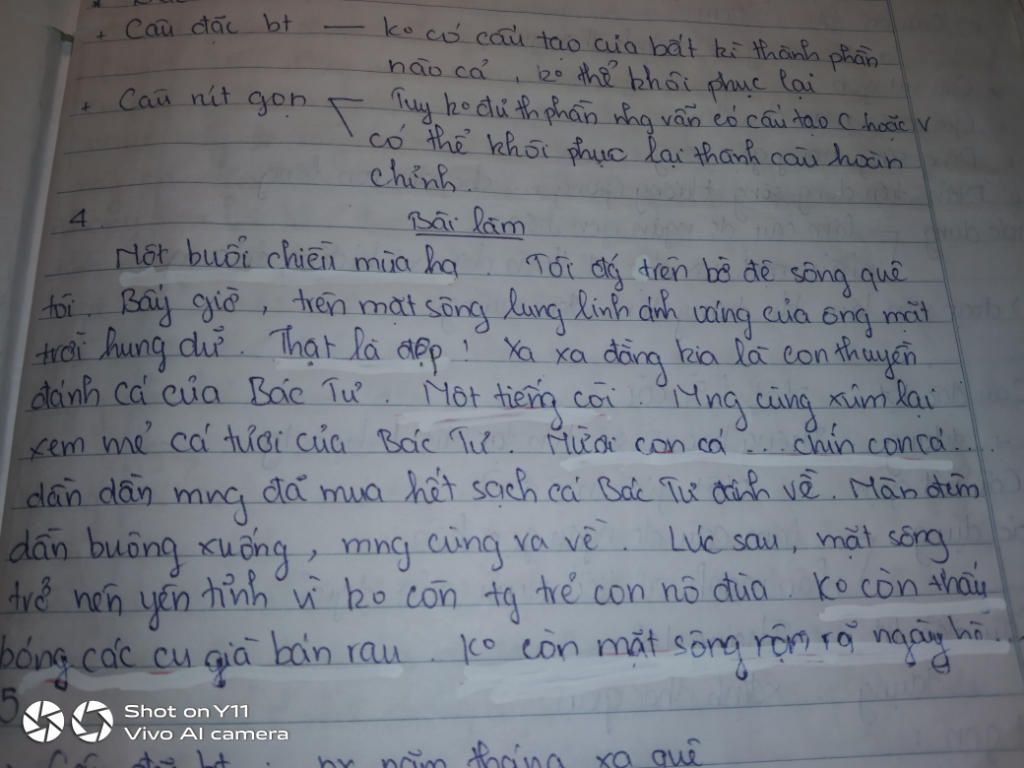 + Câu đặc bt — ko có cấu tạo của bất kì thành phần
nào cả, ko thể khôi phục lại
+ Câu rút gọn Tuy ko đủ th phần nhg vẫn có cấu tạo C hoặc V
có thể khôi phục lại thành câu hoàn
chỉnh.
4. Bài làm
Một buổi chiều mùa hạ. Tôi đg trên bờ đê sông quê
tôi. Bấy giờ, trên mặt sông lung linh ánh vàng của ông mặt
trời hung dữ. Thật là đẹp! Xa xa đằng kia là con thuyền
đánh cá của Bác Tư. Một tiếng còi. Mng cùng xúm lại
xem mẻ cá tươi của Bác Tư. Mười con cá... chín con cá...
dần dần mng đã mua hết sạch cá Bác Tư đánh về. Màn đêm
dần buông xuống, mng cùng ra về. Lúc sau, mặt sông
trở nên yên tĩnh vì ko còn tg trẻ con nô đùa. Ko còn thấy
bóng các cụ già bán rau. Ko còn mặt sông rộm rã ngày hè...
5
năm tháng xa quê
Shot on Y11
Vivo AI camera